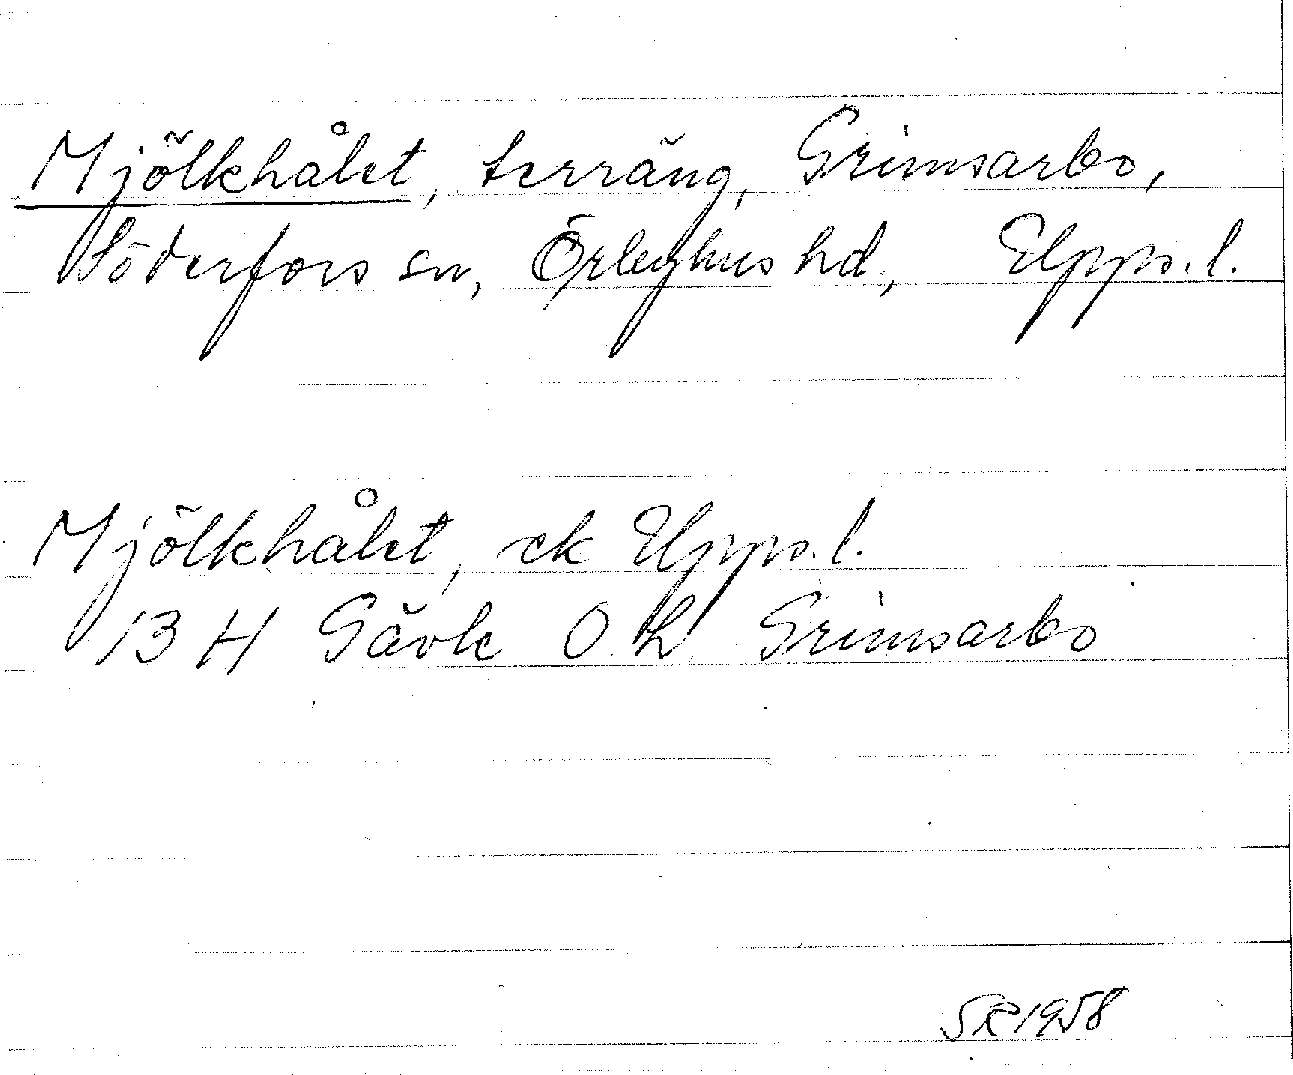 Mjölkhålet, terräng, Grimsarbo,
Söderfors sn, Örbyhus hd, Upps. l.
Mjölkhålet, ek Upps. l.
13 H Gävle O L Grimsarbo
SR 1958